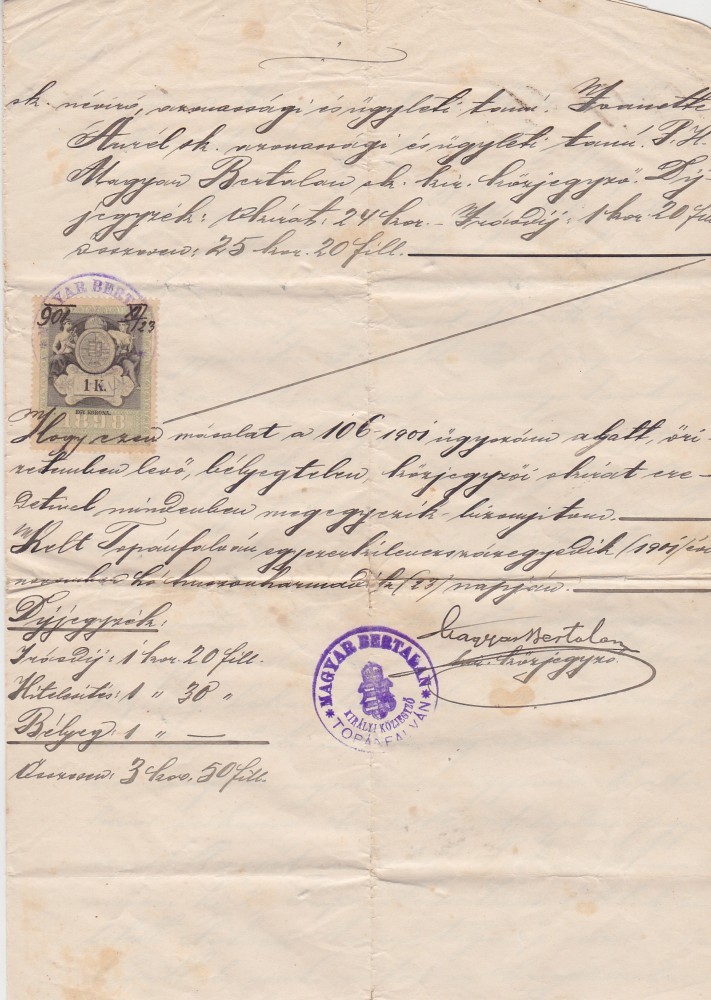 sk. névíró, azonossági és ügyleti tanú. Ivanette
Aurél sk. azonossági és ügyleti tanú. P. H.
Magyar Bertalan sk. kir. közjegyző. Díj-
jegyzék: Okirat: 24 kor. – Írásdíj: 1 kor. 20 fill.
összesen: 25 kor. 20 fill.
YAR BERTA
901 XI/23
1 K.
EGY KORONA.
1898
Hogy ezen másolat a 106–1901 ügyszám alatt, őri-
zetemben levő, bélyegtelen közjegyzői okirat ere-
detivel mindenben megegyezik – bizonyítom.
Kelt Topánfalván egyezerkilenczszázegyedik /1901/ évi
november hó huszonharmadik (23) napján.
Díjjegyzék:
Írásdíj: 1 kor. 20 fill.
Hitelesítés: 1 " 30 "
Bélyeg: 1 " —
Összesen: 3 kor. 50 fill.
Magyar Bertalan
kir. közjegyző.
* MAGYAR BERTALAN *
KIRÁLYI KÖZJEGYZŐ
TOPÁNFALVÁN